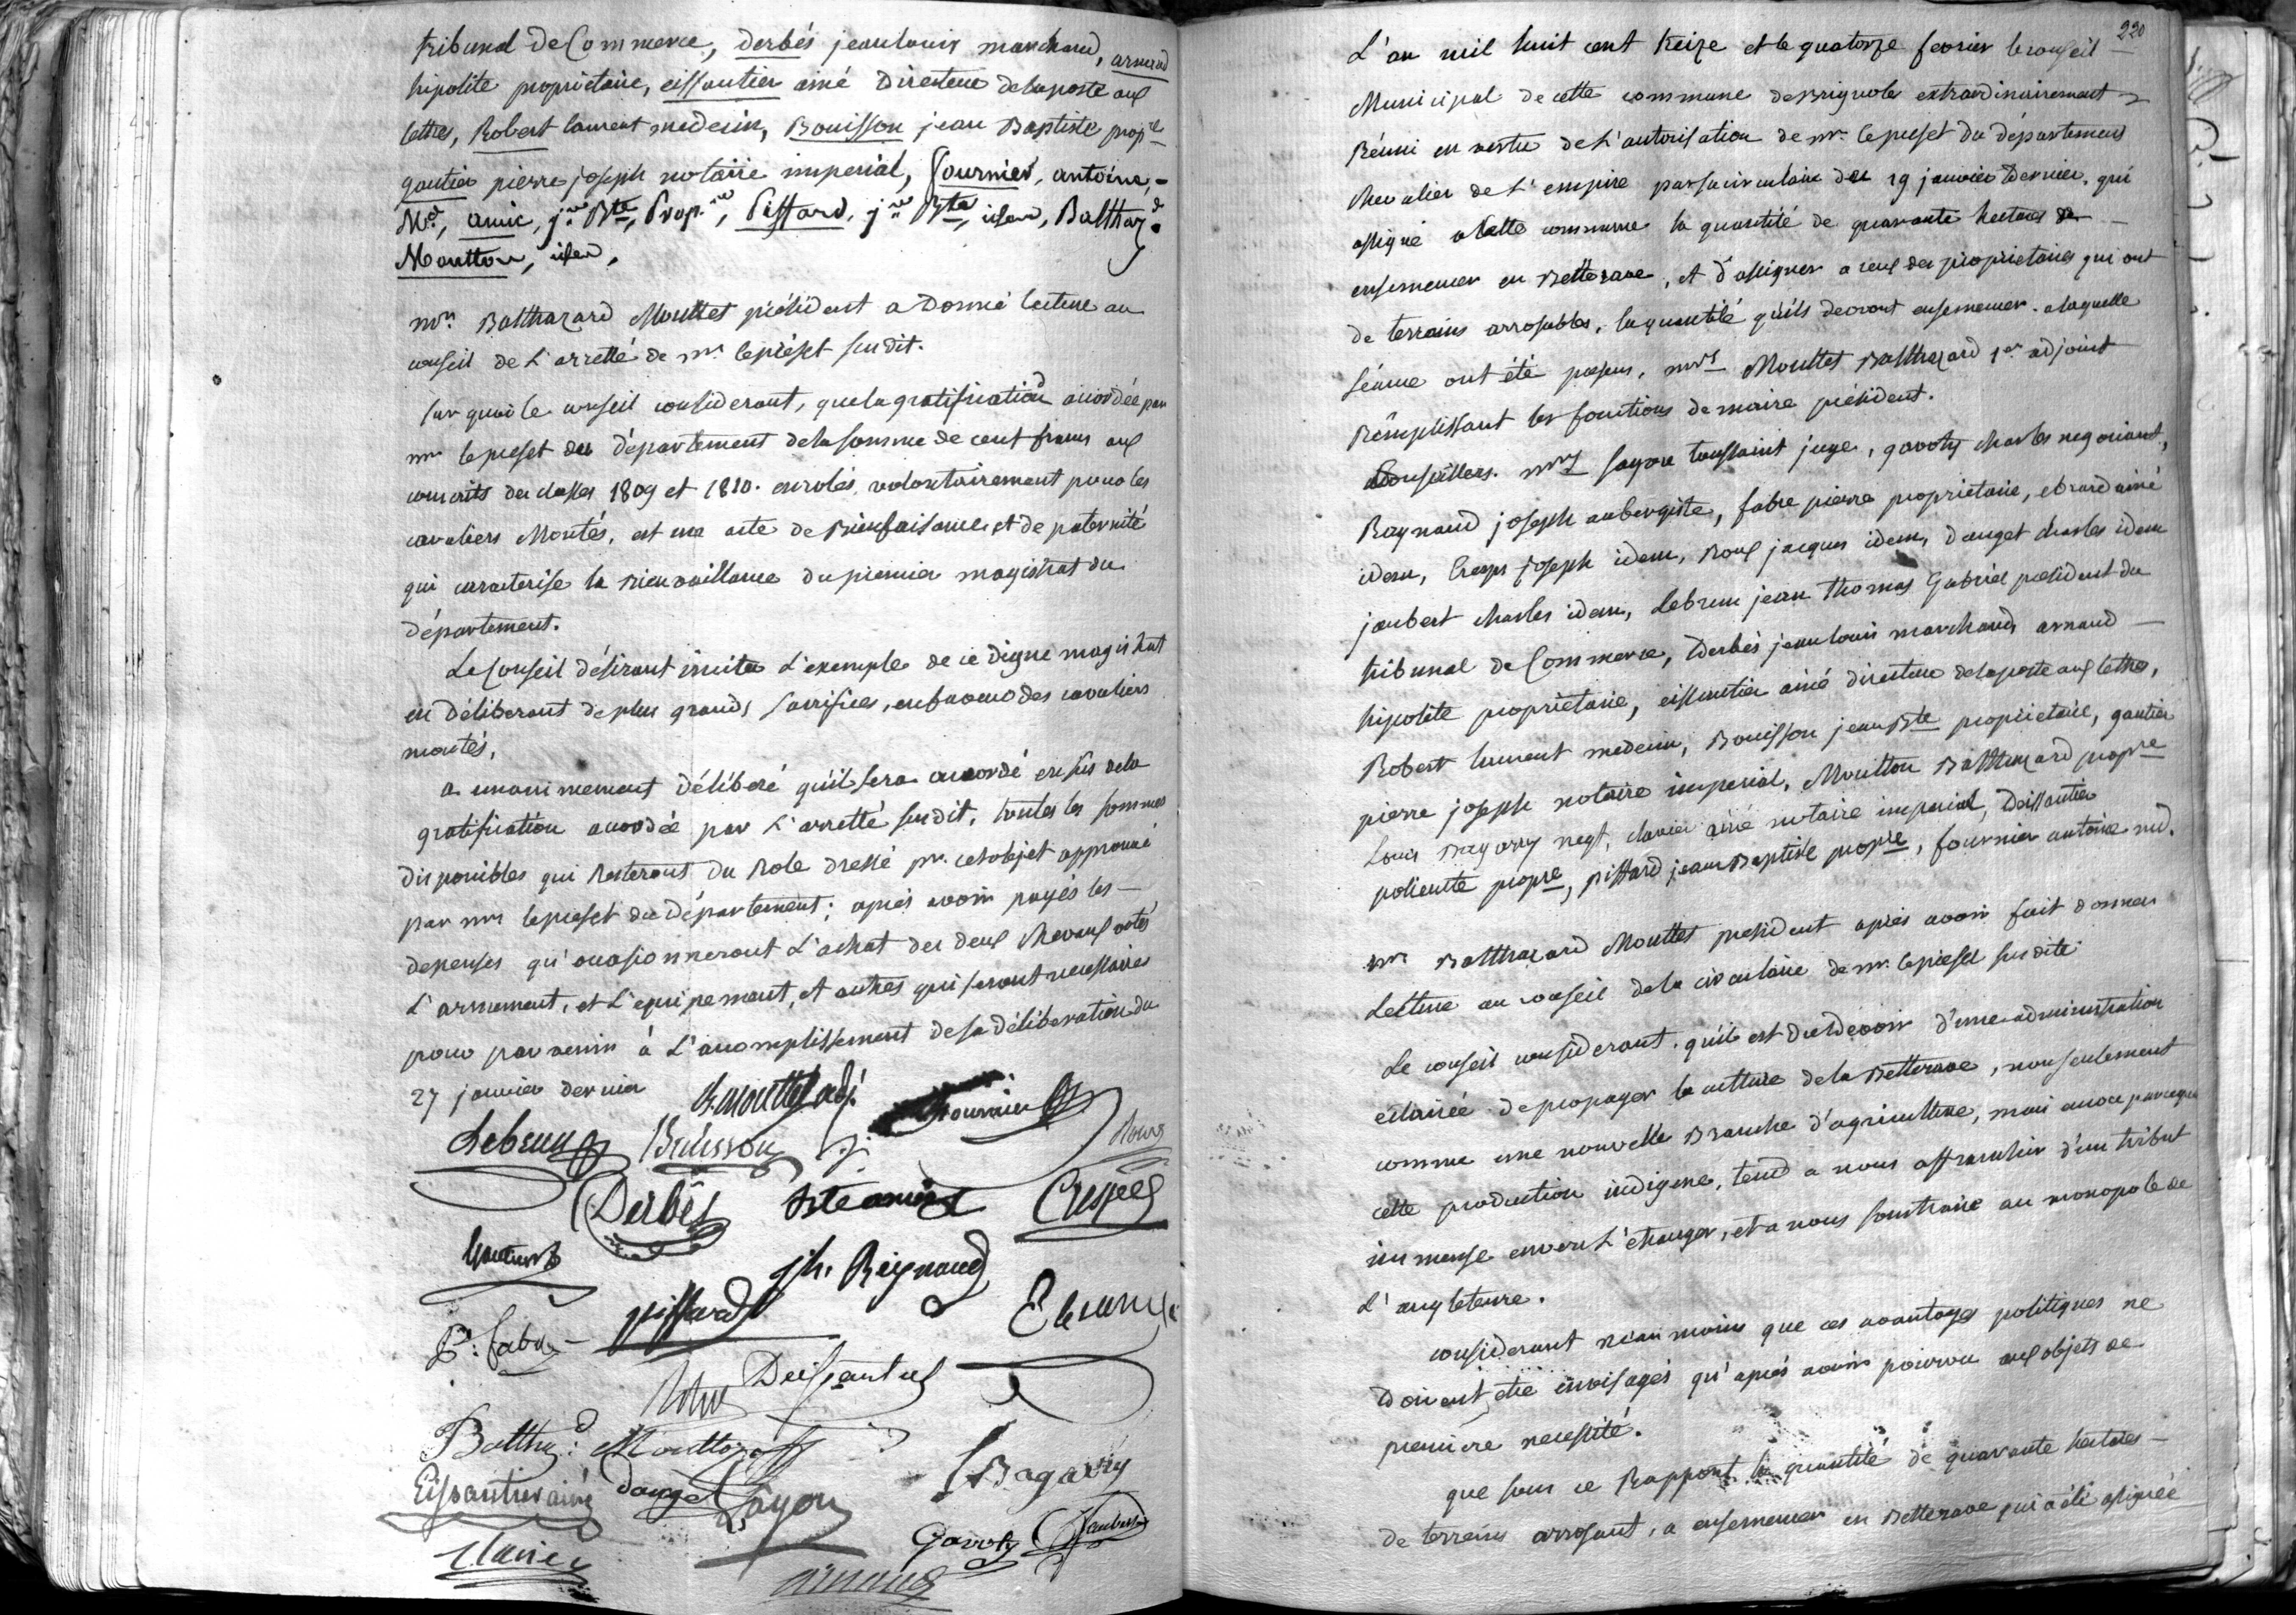 tribunal de Commerce, derbés jean louis marchand, arnaud
hipolite proprietaire, eissautier ainé Directeur de la poste aux
lettres, Robert laurent medecin, Bouisson jean Baptiste prop.re
gautier pierre joseph notaire imperial, fournier, antoine,
Md, amic, j.n Bte, Prop.re, Piffard, j.n Bte, idem, Balthaz.d
Moutton, idem.
mr. Balthazard Mouttet président a Donné lecture au
conseil de l'arretté de mr. le préfet susdit.
sur quoi le conseil considerant, que la gratification accordée par
mr le prefet du département de la somme de cent francs aux
conscrits des classes 1809 et 1810. enrolés volontairement pour les
cavaliers Montés, est un acte de Bienfaisance et de paternité
qui caracterise la Bienveillance du premier magistrat du
département.
Le Conseil désirant imiter l'exemple de ce digne magistrat
en déliberant de plus grands sacrifices, en faveur des cavaliers
montés,
a unanimement déliberé qu'il sera accordé en sus de la
gratification accordée par l'arretté susdit, toutes les sommes
disponibles qui Resteront du Role dressé pr. cet objet approuvé
par mr le prefet du département; après avoir payés les
depenses qu'occasionneront l'achat des deux chevaux votés
l'armement, et l'equipement, et autres qui seront necessaires
pour parvenir à l'accomplissement de sa déliberation du
27 janvier dernier B. mouttet adj.
fournier
Lebrun Buisson Roux
Derbés Bte amic Crespe
Gautier
jh. Reynaud
P.e fabre piffard Ebrard
Deissautier
Balthz.d Moutton
Eissautier ainé dauget Sayou L Bagarry
Clavier Gavoty Jaubert
arnaud
220
L'an mil huit cent treize et le quatorze fevrier le conseil
Municipal de cette commune de Brignoles extraordinairement
Réuni en vertu de l'autorisation de mr. le prefet du département
chevalier de l'empire par sa circulaire du 19 janvier Dernier, qui
assigne a Cette commune la quantité de quarante hectares de
ensemencer en Betterave, et d'assigner a ceux des proprietaires qui ont
de terrains arrosables, la quantité qu'ils devront ensemencer. a laquelle
séance ont été presens, mrs Mouttet Balthazard 1er adjoint
Remplissant les fonctions de maire président.
Conseillers. mrs sayou toussaint juge, gavoty charles negociant,
Raynaud joseph aubergiste, fabre pierre proprietaire, ebrard ainé
idem, Cresp joseph idem, Roux jacques idem, dauget charles idem
joubert charles idem, Lebrun jean thomas Gabriel président du
tribunal de Commerce, Derbés jean louis marchand, arnaud
hipolite proprietaire, eissautier ainé directeur de la poste aux lettres,
Robert laurent medecin, Bouisson jean Bte proprietaire, gautier
pierre joseph notaire imperial, Moutton Balthazard propre
Louis Bagarry negt, clavier ainé notaire imperial, Deissautier
policarte propre, piffard jean Baptiste propre, fournier antoine md.
mr Balthazard Mouttet président après avoir fait donner
Lecture au conseil de la circulaire de mr. le préfet susdite
Le conseil considerant. qu'il est du Devoir d'une administration
eclairée de propager la culture de la Betterave, non seulement
comme une nouvelle Branche d'agriculture, mais encor parceque
cette production indigene, tend a nous affranchir d'un tribut
immense envers l'etranger, et a nous soustraire au monopole de
L'angleterre.
considerant néanmoins que ces avantages politiques ne
doivent etre envisagés qu'après avoir pourvu aux objets de
premiere necessité.
que sous ce Rapport la quantité de quarante hectares
de terrains arrosant, a ensemencer en Betterave qui a été assignée